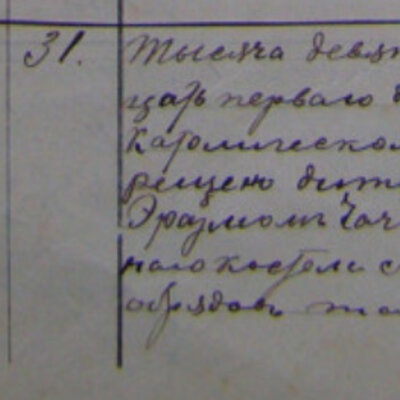 31. Тысяча девят
цать перваго
Католическом
рещено дит
Эразмомъ
наго костела с
обрядовъ та